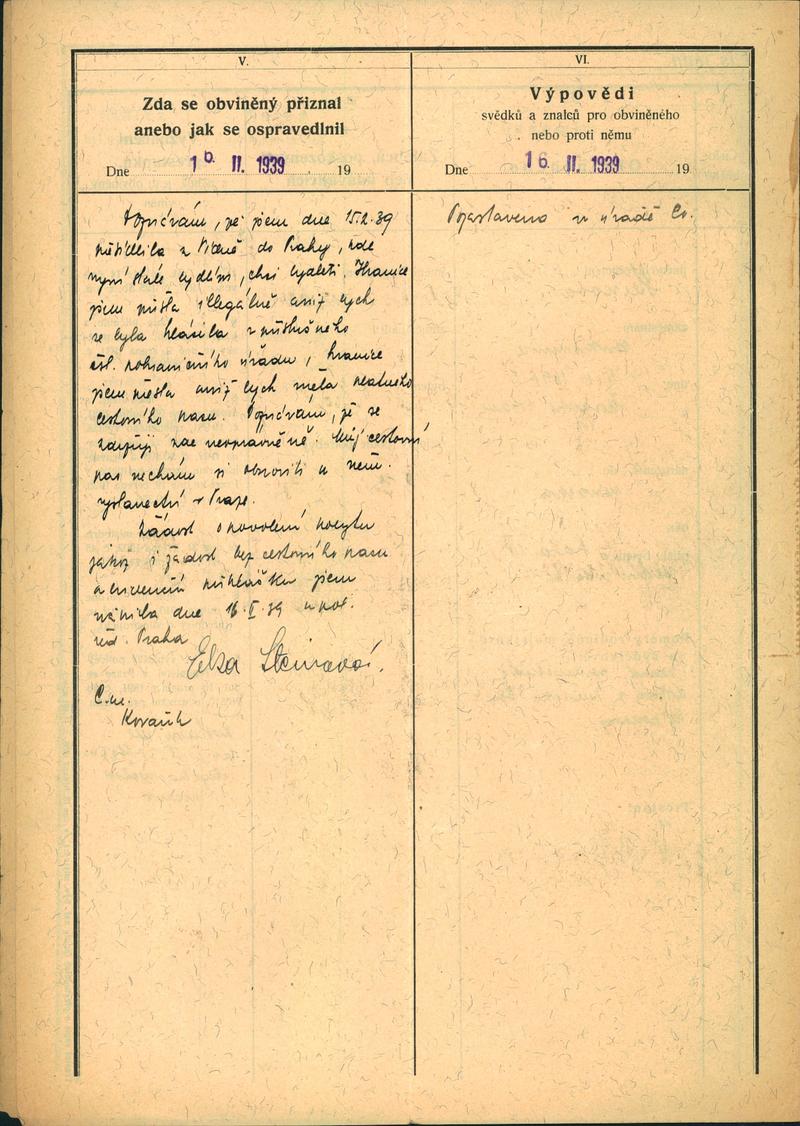 V.
Zda se obviněný přiznal
anebo jak se ospravedlnil
Dne 16. II. 1939 19
Doznávám, že jsem dne 15.2.39
přibyla z Vídně do Prahy, kde
nyní stále bydlím, chci bydleti. Hranice
jsem přišla illegálně aniž bych
se byla hlásila u příslušného
čsl. pohraničního úřadu, hranice
jsem přešla aniž bych měla platného
cestovního pasu. Doznávám, že se
zdržuji zde neoprávněně. Můj cestovní
pas nechám si obnoviti u něm.
vyslanectví v Praze.
Žádost o povolení pobytu
jakož i žádost bez cestovního pasu
a evidenční přihlášku jsem
učinila dne 16.II.39 u pol.
řed. Praha
Elsa Steinová.
C.m.
VI.
Výpovědi
svědků a znalců pro obviněného
nebo proti němu
Dne 16. II. 1939 19
v úřadě